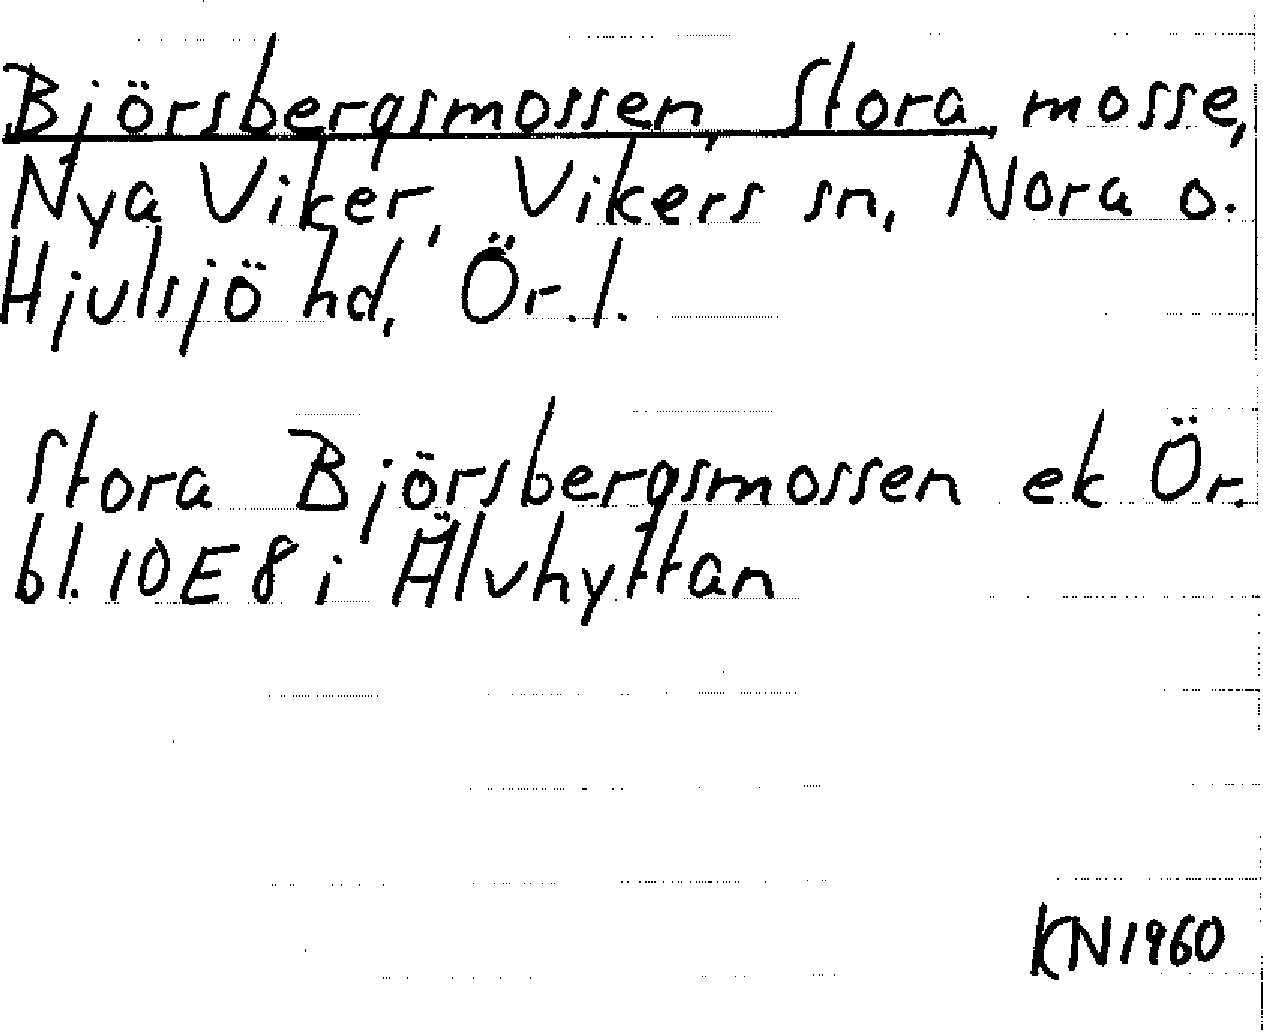 Björsbergsmossen, Stora, mosse,
Nya Viker, Vikers sn, Nora o.
Hjulsjö hd, Ör. l.
Stora Björsbergsmossen ek Ör.
bl. 10E8i Älvhyttan
KN1960